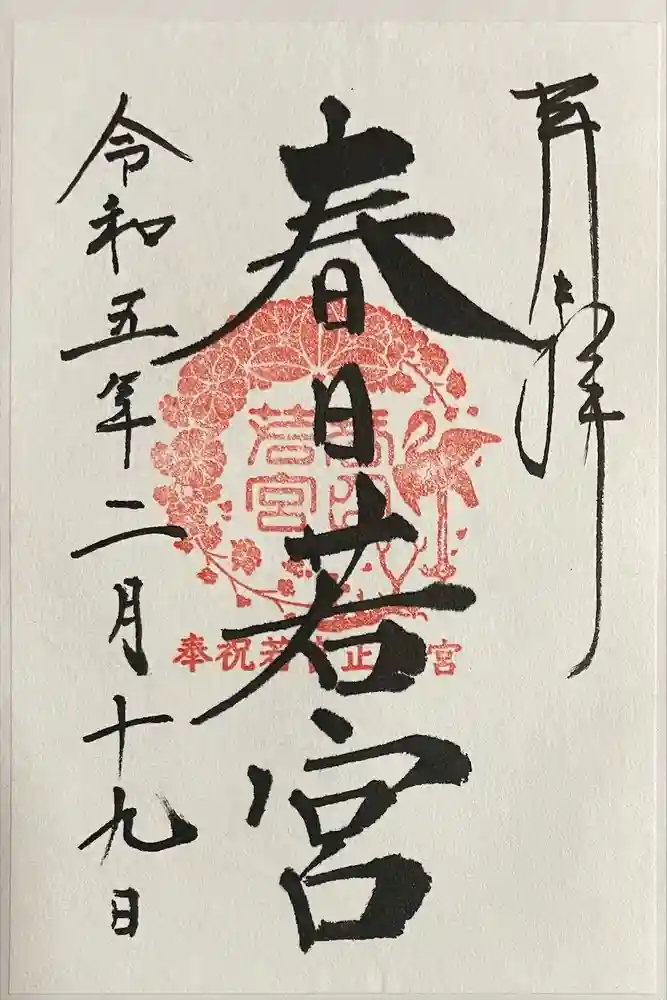 奉拝
春日若宮
令和五年二月十九日
春日
若宮
奉祝若宮正遷宮